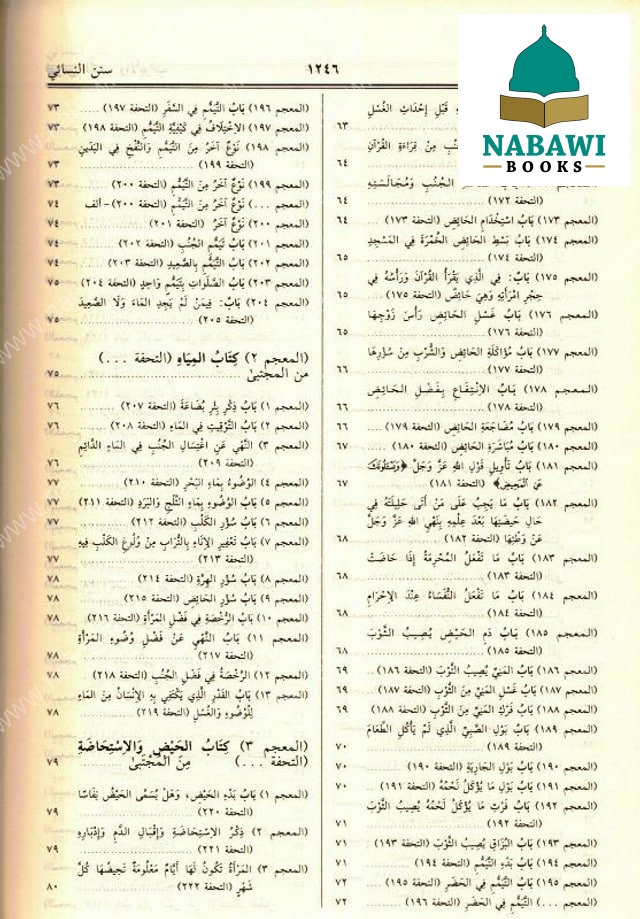 سنن النسائي ١٢٤٦
NABAWI
BOOKS
قَبْلَ إِحْدَاثِ الْغُسْلِ
٦٣
مِنْ قِرَاءَةِ الْقُرْآنِ
٦٤
الْجُنُبِ وَمُجَالَسَتِهِ
(التحفة ١٧٢) ٦٤
(المعجم ١٧٣) بَابُ اسْتِخْدَامِ الْحَائِضِ (التحفة ١٧٣) ... ٦٤
(المعجم ١٧٤) بَابُ بَسْطِ الْحَائِضِ الْخُمْرَةَ فِي الْمَسْجِدِ
(التحفة ١٧٤) ٦٥
(المعجم ١٧٥) بَابٌ: فِي الَّذِي يَقْرَأُ الْقُرْآنَ وَرَأْسُهُ فِي
حِجْرِ امْرَأَتِهِ وَهِيَ حَائِضٌ (التحفة ١٧٥) ... ٦٥
(المعجم ١٧٦) بَابُ غَسْلِ الْحَائِضِ رَأْسَ زَوْجِهَا
(التحفة ١٧٦) ٦٥
(المعجم ١٧٧) بَابُ مُؤَاكَلَةِ الْحَائِضِ وَالشُّرْبِ مِنْ سُؤْرِهَا
(التحفة ١٧٧) ٦٦
(المعجم ١٧٨) بَابُ الِانْتِفَاعِ بِفَضْلِ الْحَائِضِ
(التحفة ١٧٨) ٦٦
(المعجم ١٧٩) بَابُ مُضَاجَعَةِ الْحَائِضِ (التحفة ١٧٩) ... ٦٦
(المعجم ١٨٠) بَابُ مُبَاشَرَةِ الْحَائِضِ (التحفة ١٨٠) ... ٦٧
(المعجم ١٨١) بَابُ تَأْوِيلِ قَوْلِ اللهِ عَزَّ وَجَلَّ ﴿وَيَسْئَلُونَكَ
عَنِ الْمَحِيضِ﴾ (التحفة ١٨١) ٦٧
(المعجم ١٨٢) بَابُ مَا يَجِبُ عَلَى مَنْ أَتَى حَلِيلَتَهُ فِي
حَالِ حَيْضَتِهَا بَعْدَ عِلْمِهِ بِنَهْيِ اللهِ عَزَّ وَجَلَّ
عَنْ وَطْئِهَا (التحفة ١٨٢) ٦٨
(المعجم ١٨٣) بَابُ مَا تَفْعَلُ الْمُحْرِمَةُ إِذَا حَاضَتْ
(التحفة ١٨٣) ٦٨
(المعجم ١٨٤) بَابُ مَا تَفْعَلُ النُّفَسَاءُ عِنْدَ الْإِحْرَامِ
(التحفة ١٨٤) ٦٨
(المعجم ١٨٥) بَابُ دَمِ الْحَيْضِ يُصِيبُ الثَّوْبَ
(التحفة ١٨٥) ٦٨
(المعجم ١٨٦) بَابُ الْمَنِيِّ يُصِيبُ الثَّوْبَ (التحفة ١٨٦) ... ٦٩
(المعجم ١٨٧) بَابُ غَسْلِ الْمَنِيِّ مِنَ الثَّوْبِ (التحفة ١٨٧) ... ٦٩
(المعجم ١٨٨) بَابُ فَرْكِ الْمَنِيِّ مِنَ الثَّوْبِ (التحفة ١٨٨) ٦٩
(المعجم ١٨٩) بَابُ بَوْلِ الصَّبِيِّ الَّذِي لَمْ يَأْكُلِ الطَّعَامَ
(التحفة ١٨٩) ٧٠
(المعجم ١٩٠) بَابُ بَوْلِ الْجَارِيَةِ (التحفة ١٩٠) ٧٠
(المعجم ١٩١) بَابُ بَوْلِ مَا يُؤْكَلُ لَحْمُهُ (التحفة ١٩١) .. ٧٠
(المعجم ١٩٢) بَابُ فَرْثِ مَا يُؤْكَلُ لَحْمُهُ يُصِيبُ الثَّوْبَ
(التحفة ١٩٢) ٧١
(المعجم ١٩٣) بَابُ الْبُزَاقِ يُصِيبُ الثَّوْبَ (التحفة ١٩٣) ٧١
(المعجم ١٩٤) بَابُ بَدْءِ التَّيَمُّمِ (التحفة ١٩٤) ٧١
(المعجم ١٩٥) بَابُ التَّيَمُّمِ فِي الْحَضَرِ (التحفة ١٩٥) ... ٧٢
(المعجم ...) التَّيَمُّمِ فِي الْحَضَرِ (التحفة ١٩٦) ٧٢
(المعجم ١٩٦) بَابُ التَّيَمُّمِ فِي السَّفَرِ (التحفة ١٩٧) ..... ٧٣
(المعجم ١٩٧) الِاخْتِلَافُ فِي كَيْفِيَّةِ التَّيَمُّمِ (التحفة ١٩٨) ٧٣
(المعجم ١٩٨) نَوْعٌ آخَرُ مِنَ التَّيَمُّمِ وَالنَّفْخِ فِي الْيَدَيْنِ
(التحفة ١٩٩) ٧٣
(المعجم ١٩٩) نَوْعٌ آخَرُ مِنَ التَّيَمُّمِ (التحفة ٢٠٠) ٧٣
(المعجم ...) نَوْعٌ آخَرُ مِنَ التَّيَمُّمِ (التحفة ٢٠٠) - ألف ٧٤
(المعجم ٢٠٠) نَوْعٌ آخَرُ (التحفة ٢٠١) ٧٤
(المعجم ٢٠١) بَابُ تَيَمُّمِ الْجُنُبِ (التحفة ٢٠٢) ٧٤
(المعجم ٢٠٢) بَابُ التَّيَمُّمِ بِالصَّعِيدِ (التحفة ٢٠٣) ٧٤
(المعجم ٢٠٣) بَابُ الصَّلَوَاتِ بِتَيَمُّمٍ وَاحِدٍ (التحفة ٢٠٤) ٧٥
(المعجم ٢٠٤) بَابٌ: فِيمَنْ لَمْ يَجِدِ الْمَاءَ وَلَا الصَّعِيدَ
(التحفة ٢٠٥) ٧٥
(المعجم ٢) كِتَابُ الْمِيَاهِ (التحفة ...)
من المجتبىٰ ٧٥
(المعجم ١) بَابُ ذِكْرِ بِئْرِ بُضَاعَةَ (التحفة ٢٠٧) ٧٦
(المعجم ٢) بَابُ التَّوْقِيتِ فِي الْمَاءِ (التحفة ٢٠٨) ٧٦
(المعجم ٣) النَّهْيُ عَنِ اغْتِسَالِ الْجُنُبِ فِي الْمَاءِ الدَّائِمِ
(التحفة ٢٠٩) ٧٦
(المعجم ٤) الْوُضُوءُ بِمَاءِ الْبَحْرِ (التحفة ٢١٠) ٧٧
(المعجم ٥) بَابُ الْوُضُوءِ بِمَاءِ الثَّلْجِ وَالْبَرَدِ (التحفة ٢١١) ٧٧
(المعجم ٦) بَابُ سُؤْرِ الْكَلْبِ (التحفة ٢١٢) ٧٧
(المعجم ٧) بَابُ تَعْفِيرِ الْإِنَاءِ بِالتُّرَابِ مِنْ وُلُوغِ الْكَلْبِ فِيهِ
(التحفة ٢١٣) ٧٧
(المعجم ٨) بَابُ سُؤْرِ الْهِرَّةِ (التحفة ٢١٤) ٧٨
(المعجم ٩) بَابُ سُؤْرِ الْحَائِضِ (التحفة ٢١٥) ٧٨
(المعجم ١٠) بَابُ الرُّخْصَةِ فِي فَضْلِ الْمَرْأَةِ (التحفة ٢١٦) ٧٨
(المعجم ١١) بَابُ النَّهْيِ عَنْ فَضْلِ وُضُوءِ الْمَرْأَةِ
(التحفة ٢١٧) ٧٨
(المعجم ١٢) الرُّخْصَةُ فِي فَضْلِ الْجُنُبِ (التحفة ٢١٨) ٧٨
(المعجم ١٣) بَابُ الْقَدْرِ الَّذِي يَكْتَفِي بِهِ الْإِنْسَانُ مِنَ الْمَاءِ
لِلْوُضُوءِ وَالْغُسْلِ (التحفة ٢١٩) ٧٨
(المعجم ٣) كِتَابُ الْحَيْضِ وَالِاسْتِحَاضَةِ
(التحفة ...) مِنَ الْمُجْتَبىٰ ٧٩
(المعجم ١) بَابُ بَدْءِ الْحَيْضِ، وَهَلْ يُسَمَّى الْحَيْضُ نِفَاسًا
(التحفة ٢٢٠) ٧٩
(المعجم ٢) ذِكْرُ الِاسْتِحَاضَةِ وَإِقْبَالِ الدَّمِ وَإِدْبَارِهِ
(التحفة ٢٢١) ٧٩
(المعجم ٣) الْمَرْأَةُ تَكُونُ لَهَا أَيَّامٌ مَعْلُومَةٌ تَحِيضُهَا كُلَّ
شَهْرٍ (التحفة ٢٢٢) ٨٠